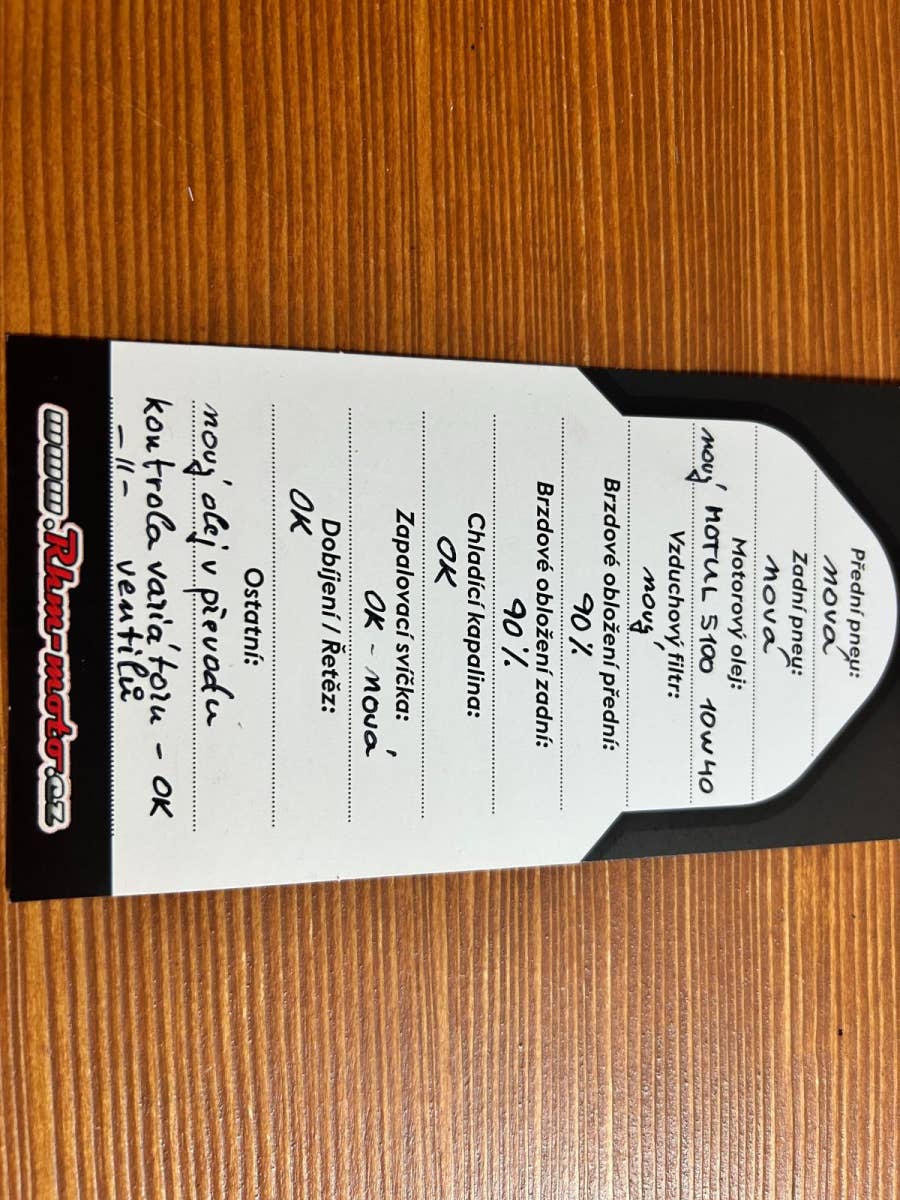 Přední pneu:
nová
Zadní pneu:
nová
Motorový olej:
nový MOTUL 5100 10W40
Vzduchový filtr:
nový
Brzdové obložení přední:
90%
Brzdové obložení zadní:
90%
Chladící kapalina:
OK
Zapalovací svíčka:
OK - nová
Dobíjení / Řetěz:
OK
Ostatní:
nový olej v převodu
kontrola variátoru - OK
-||- ventilů
www.Rhm-moto.cz